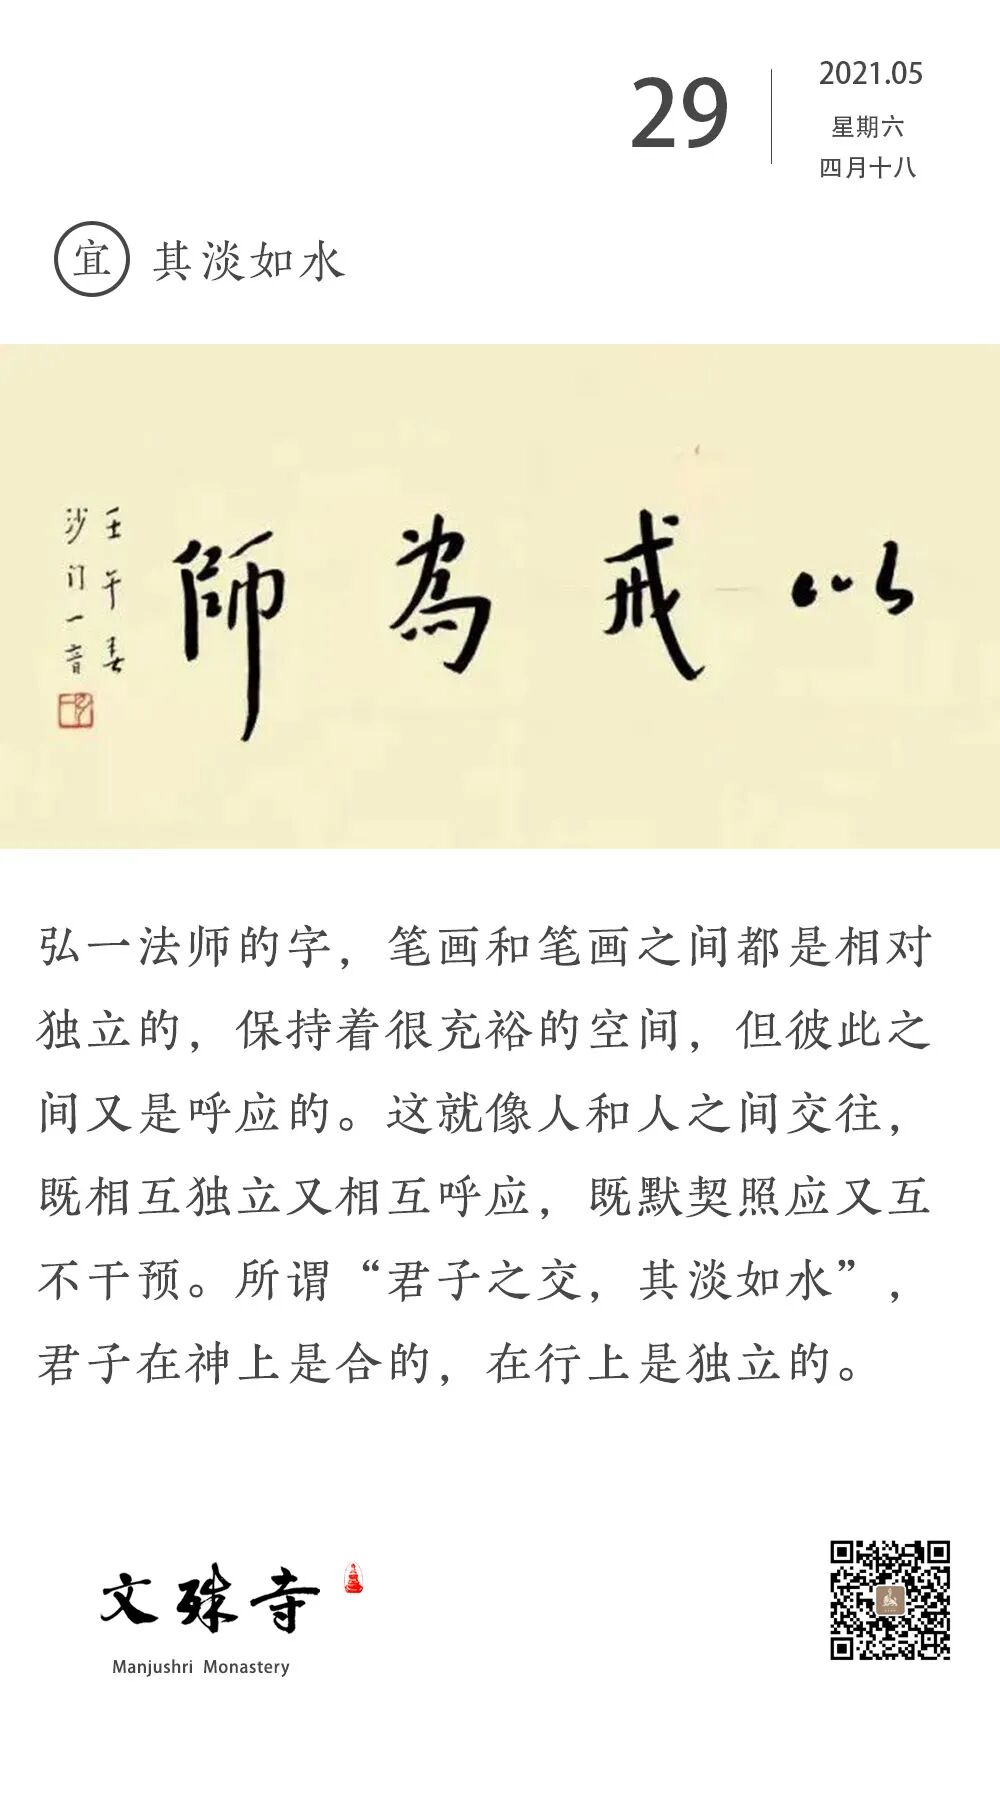 29
2021.05
星期六
四月十八
宜 其淡如水
以戒為師
壬午春
沙门一音
弘一法师的字，笔画和笔画之间都是相对
独立的，保持着很充裕的空间，但彼此之
间又是呼应的。这就像人和人之间交往，
既相互独立又相互呼应，既默契照应又互
不干预。所谓“君子之交，其淡如水”，
君子在神上是合的，在行上是独立的。
文殊寺
Manjushri Monastery